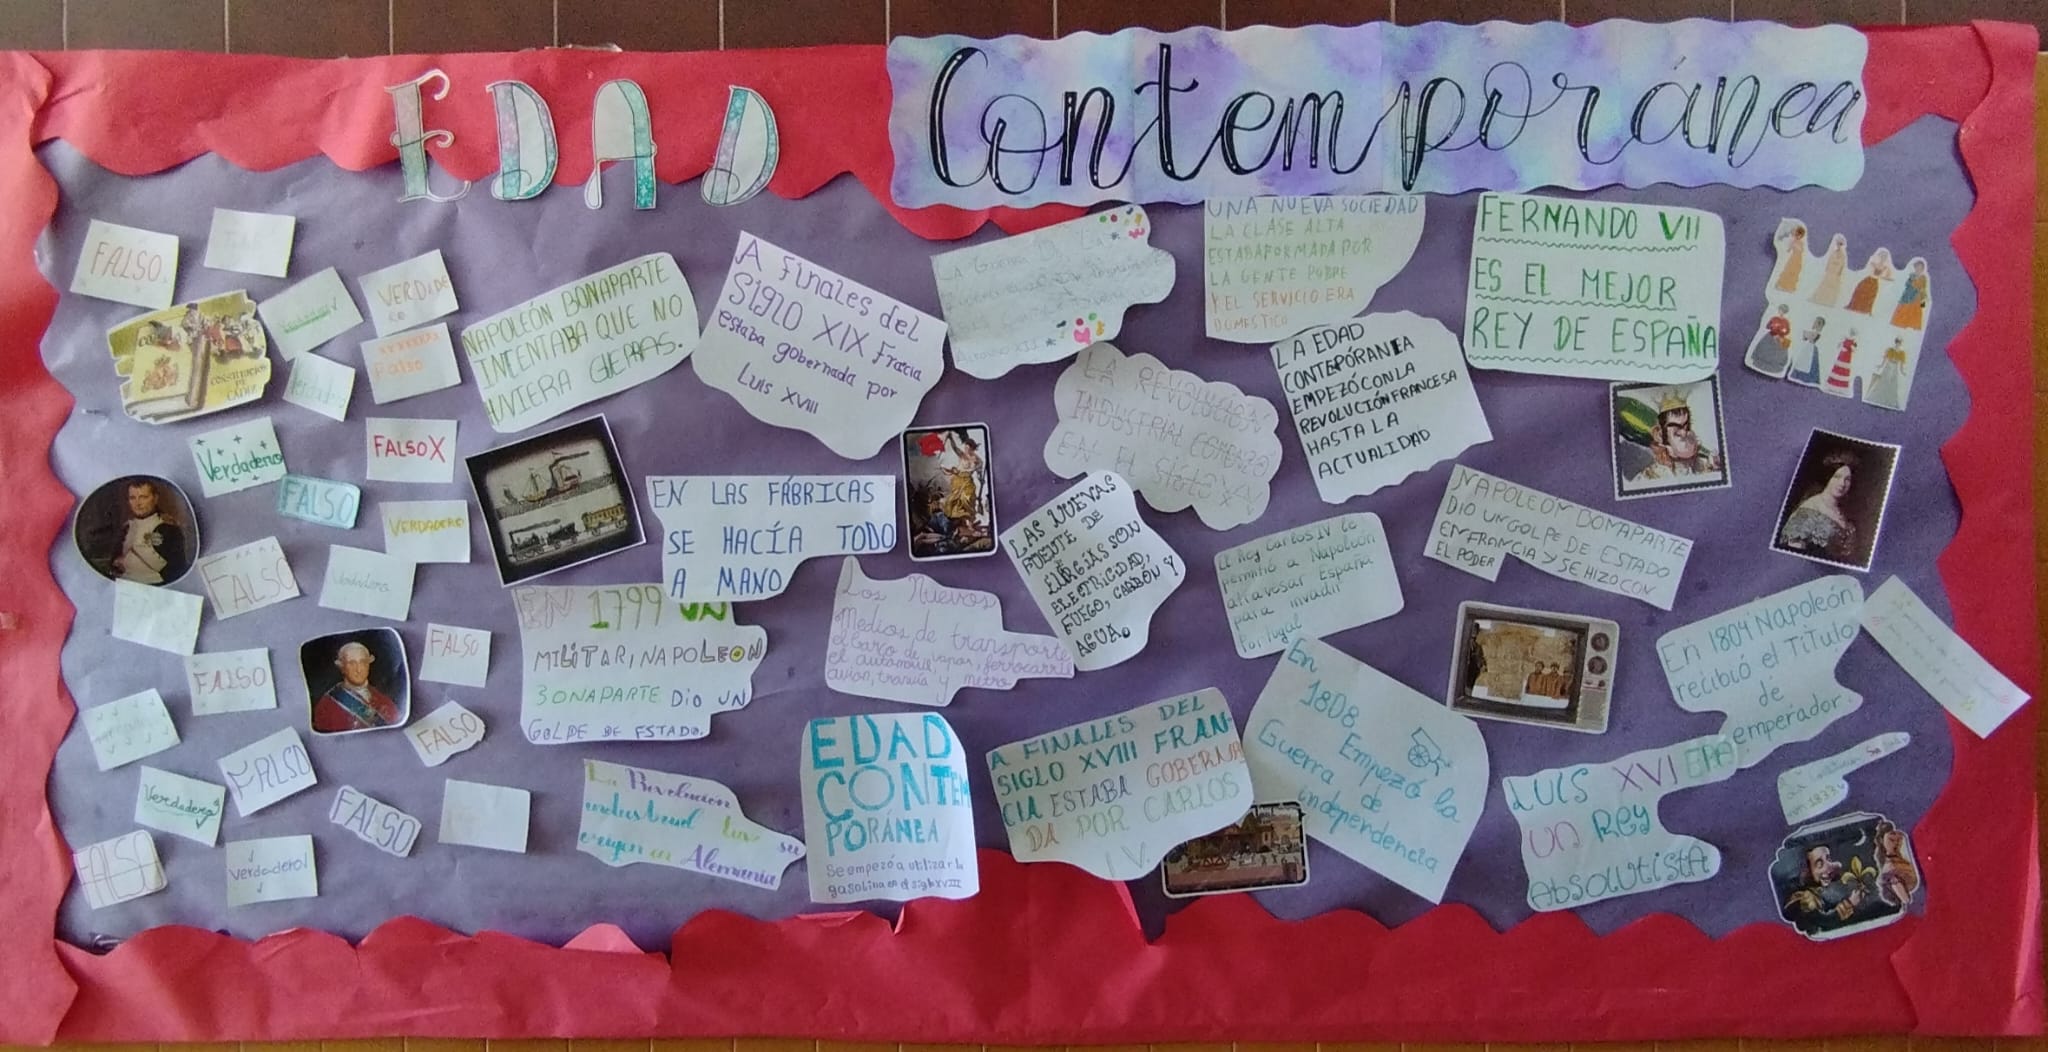 EDAD
Contemporánea
FALSO
VERDADE
RO
Verdadero
Falso
Verdadero
CONSTITUCIÓN
DE
CÁDIZ
FALSO X
Verdadero
FALSO
VERDADERO
FALSO
Verdadera
FALSO
FALSO
FALSO
FALSO
Verdadero
FALSO
FALSO
Verdadero!
NAPOLEÓN BONAPARTE
INTENTABA QUE NO
UVIERA GERRAS.
A Finales del
Siglo XIX Fracia
estaba gobernada por
Luis XVIII
LA Guerra De La
Alfonso XII
UNA NUEVA SOCIEDAD
LA CLASE ALTA
ESTABAFORMADA POR
LA GENTE POBRE
Y EL SERVICIO ERA
DOMESTICO
FERNANDO VII
ES EL MEJOR
REY DE ESPAÑA
LA REVOLUCIÓN
INDUSTRIAL COMENZO
EN EL
LA EDAD
CONTEPÓRANEA
EMPEZÓ CON LA
REVOLUCIÓN FRANCESA
HASTA LA
ACTUALIDAD
EN LAS FÁBRICAS
SE HACÍA TODO
A MANO
LAS NUEVAS
FUENTE DE
ELECTRICIDAD,
FUEGO, CARBÓN Y
AGUA.
El Rey Carlos IV le
permitió a Napoleón
atravesar España
para invadir
Portugal
NAPOLEÓN BONAPARTE
DIO UN GOLPE DE ESTADO
EN FRANCIA Y SE HIZO CON
EL PODER
EN 1799 UN
MILITAR, NAPOLEON
BONAPARTE DIO UN
GOLPE DE ESTADO.
Los Nuevos
Medios de transporte
el barco de vapor, ferrocarril
el automóvil
avion, tranvía y metro
En 1804 Napoleón
recibió el Título
de
emperador.
La Revolucion
industrual tuvo su
origen en Alemania
EDAD
CONTEM
PORÁNEA
Se empezó a utilizar la
gasolina en el siglo XVIII
A FINALES DEL
SIGLO XVIII FRAN-
CIA ESTABA GOBERNA
DA POR CARLOS
IV.
En
1808 Empezó la
Guerra de
independencia
LUIS XVI ERA
UN Rey
AbSOLUtIStA